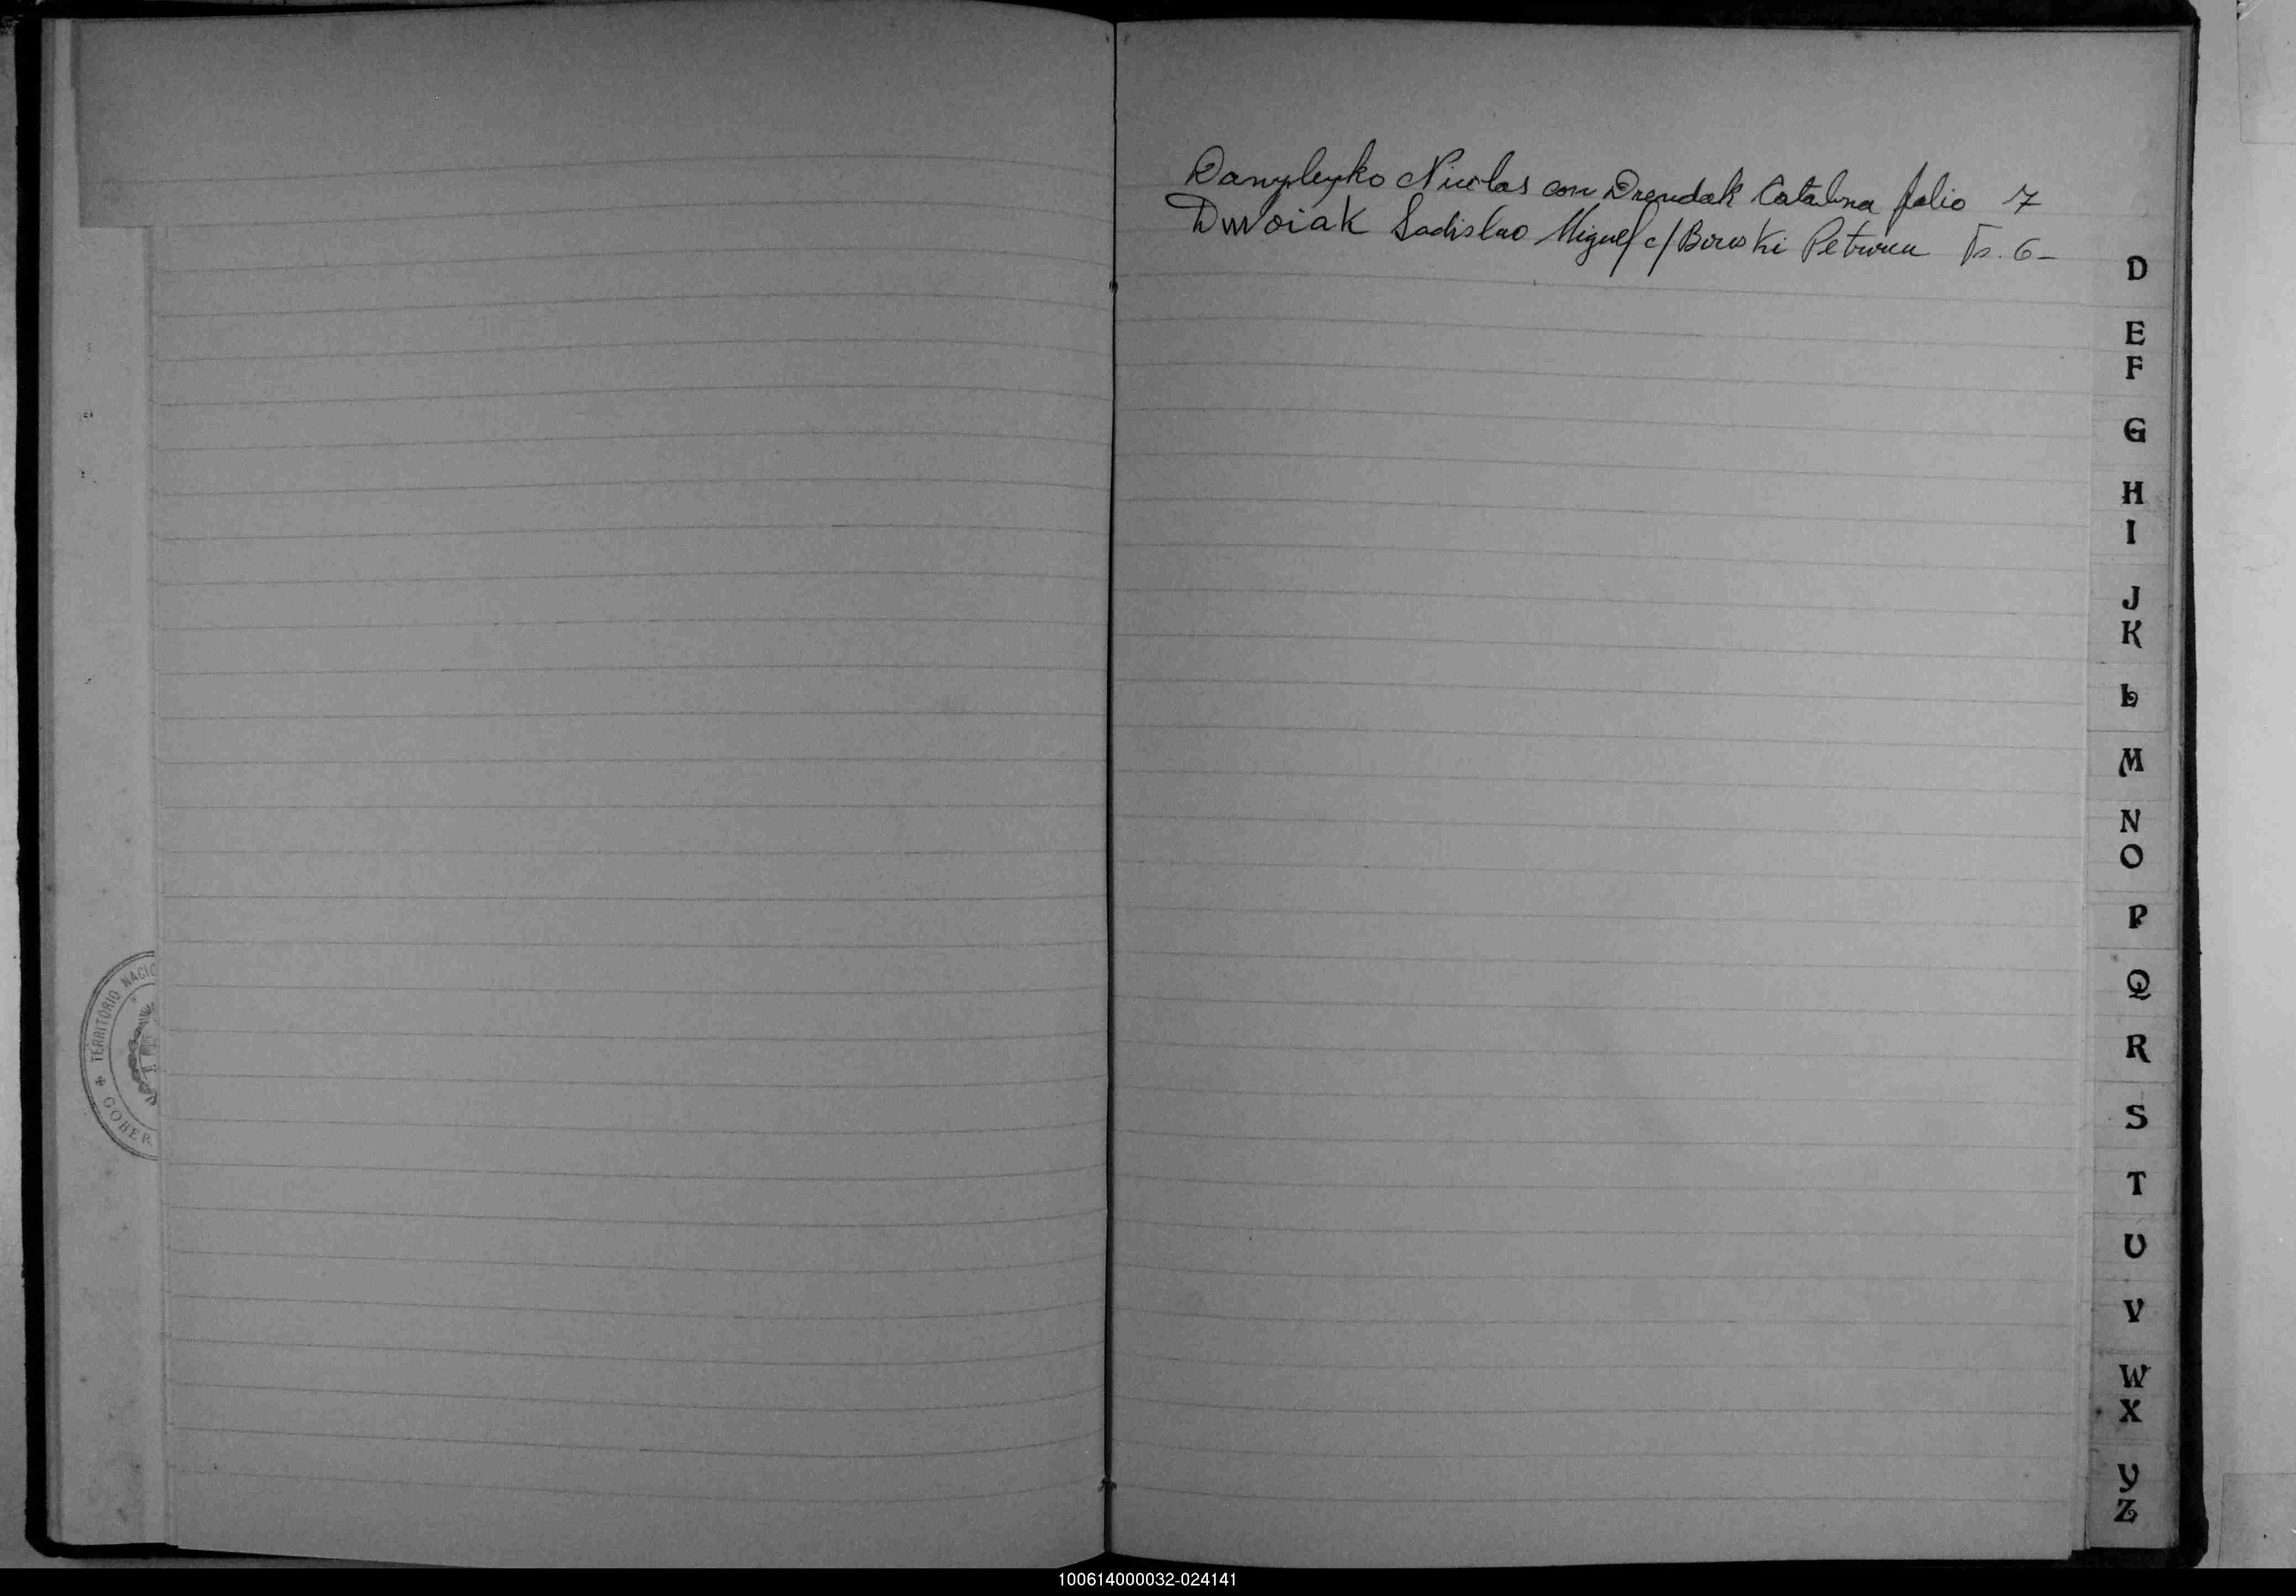 Danyleyko Nicolas con Drendak Catalina folio 7
Dwoiak Ladislao Miguel c/ Boreski Petrona Fs. 6-
D
E
F
G
H
I
J
K
L
M
N
O
P
Q
R
S
T
U
V
W
X
Y
Z
TERRITORIO NACIO
GOBER
100614000032-024141